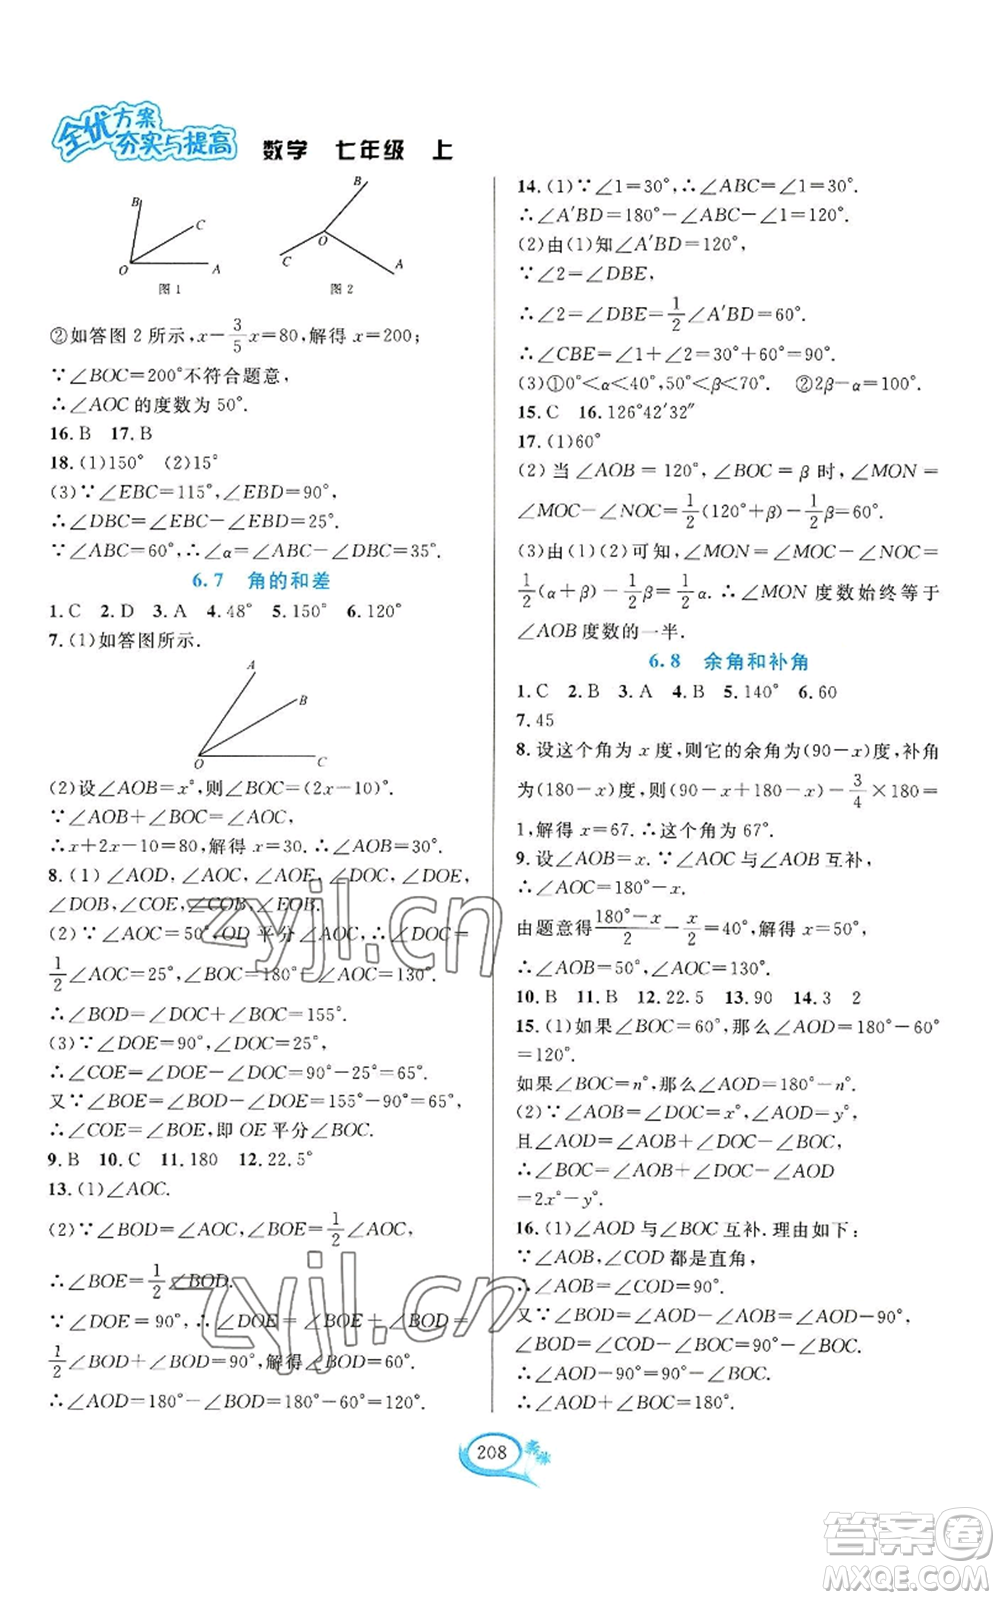 全优方案
夯实与提高
数学 七年级 上
B
C
O
A
图1
B
O
C
A
图2
②如答图2所示,x-3/5x=80,解得x=200;
∵∠BOC=200°不符合题意,
∴∠AOC的度数为50°.
16.B 17.B
18.(1)150° (2)15°
(3)∵∠EBC=115°,∠EBD=90°,
∴∠DBC=∠EBC-∠EBD=25°.
∵∠ABC=60°,∴∠α=∠ABC-∠DBC=35°.
6.7 角的和差
1.C 2.D 3.A 4.48° 5.150° 6.120°
7.(1)如答图所示.
A
B
O
C
(2)设∠AOB=x°,则∠BOC=(2x-10)°.
∵∠AOB+∠BOC=∠AOC,
∴x+2x-10=80,解得x=30.∴∠AOB=30°.
8.(1)∠AOD,∠AOC,∠AOE,∠DOC,∠DOE,
∠DOB,∠COE,∠COB,∠EOB.
(2)∵∠AOC=50°,OD平分∠AOC,∴∠DOC=
1/2∠AOC=25°,∠BOC=180°-∠AOC=130°.
∴∠BOD=∠BOC+∠DOC=155°.
(3)∵∠DOE=90°,∠DOC=25°,
∴∠COE=∠DOE-∠DOC=90°-25°=65°.
又∵∠BOE=∠BOD-∠DOE=155°-90°=65°,
∴∠COE=∠BOE,即OE平分∠BOC.
9.B 10.C 11.180 12.22.5°
13.(1)∠AOC.
(2)∵∠BOD=∠AOC,∠BOE=1/2∠AOC,
∴∠BOE=1/2∠BOD.
∵∠DOE=90°,∴∠DOE=∠BOE+∠BOD=
1/2∠BOD+∠BOD=90°,解得∠BOD=60°.
∴∠AOD=180°-∠BOD=180°-60°=120°.
14.(1)∵∠1=30°,∴∠ABC=∠1=30°,
∴∠A′BD=180°-∠ABC-∠1=120°.
(2)由(1)知∠A′BD=120°,
∵∠2=∠DBE,
∴∠2=∠DBE=1/2∠A′BD=60°.
∴∠CBE=∠1+∠2=30°+60°=90°.
(3)①0°<α<40°,50°<β<70°. ②2β-α=100°.
15.C 16.126°42′32″
17.(1)60°
(2)当∠AOB=120°,∠BOC=β时,∠MON=
∠MOC-∠NOC=1/2(120°+β)-1/2β=60°.
(3)由(1)(2)可知,∠MON=∠MOC-∠NOC=
1/2(α+β)-1/2β=1/2α.∴∠MON度数始终等于
∠AOB度数的一半.
6.8 余角和补角
1.C 2.B 3.A 4.B 5.140° 6.60
7.45
8.设这个角为x度,则它的余角为(90-x)度,补角
为(180-x)度,则(90-x+180-x)-3/4×180=
1,解得x=67.∴这个角为67°.
9.设∠AOB=x.∵∠AOC与∠AOB互补,
∴∠AOC=180°-x.
由题意得(180°-x)/2-x/2=40°,解得x=50°,
∴∠AOB=50°,∠AOC=130°.
10.B 11.B 12.22.5 13.90 14.3 2
15.(1)如果∠BOC=60°,那么∠AOD=180°-60°
=120°.
如果∠BOC=n°,那么∠AOD=180°-n°.
(2)∵∠AOB=∠DOC=x°,∠AOD=y°,
且∠AOD=∠AOB+∠DOC-∠BOC,
∴∠BOC=∠AOB+∠DOC-∠AOD
=2x°-y°.
16.(1)∠AOD与∠BOC互补.理由如下:
∵∠AOB,∠COD都是直角,
∴∠AOB=∠COD=90°.
又∵∠BOD=∠AOD-∠AOB=∠AOD-90°,
∠BOD=∠COD-∠BOC=90°-∠BOC,
∴∠AOD-90°=90°-∠BOC,
∴∠AOD+∠BOC=180°.
208
zyjl.cn
zyjl.cn
答案卷
MXQE.COM